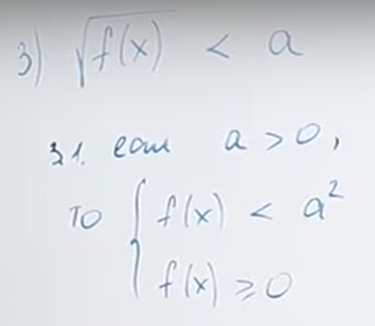 3) √f(x) < a
3.1. если a > 0,
то { f(x) < a²
f(x) ⩾ 0